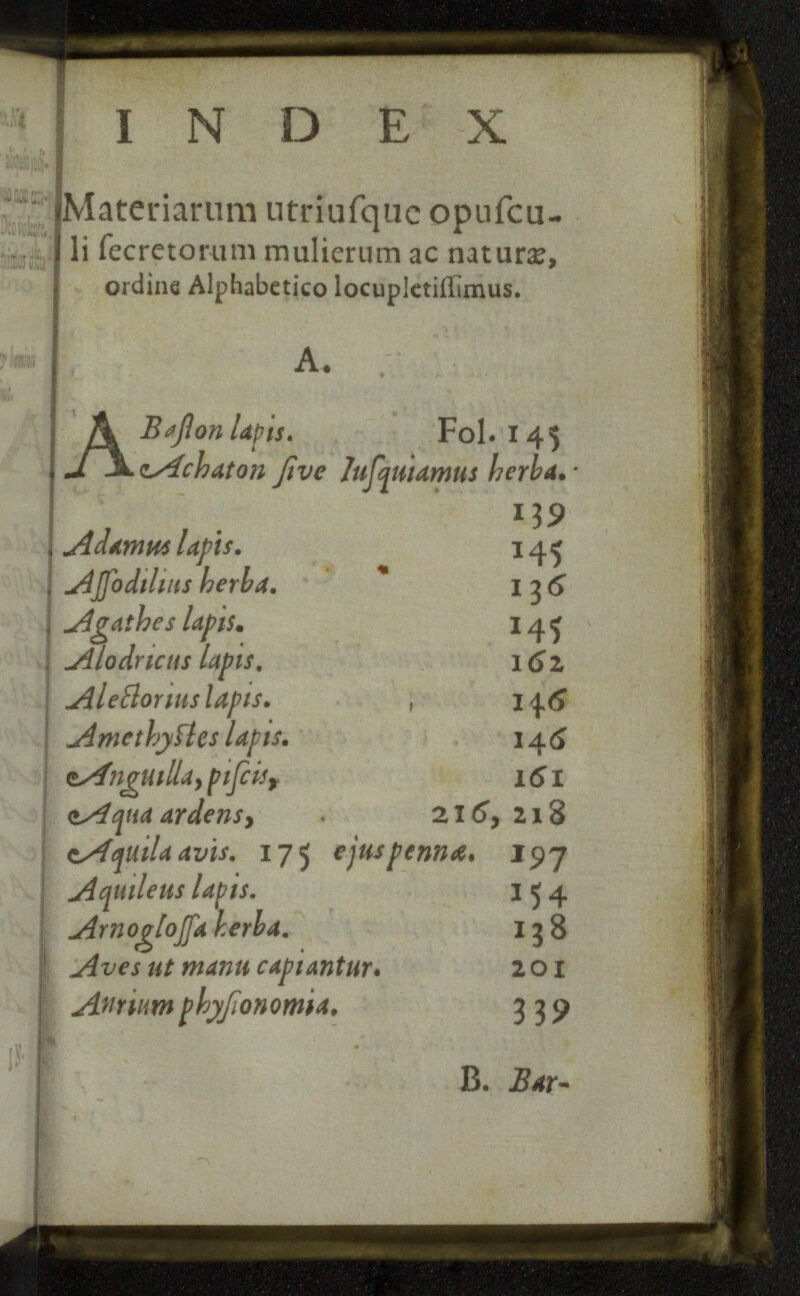 INDEX
Materiarum utriuſque opuſcu-
li ſecretorum mulierum ac naturæ,
ordine Alphabetico locupletiſſimus.
A.
ABaſton lapis. Fol. 145
Achaton ſive Iuſquiamus herba.
139
Adamus lapis. 145
Aſſodilius herba. 136
Agathes lapis. 145
Alodricus lapis. 162
Alectorius lapis. 146
Amethyſtes lapis. 146
Anguilla, piſcis, 161
Aqua ardens, 216, 218
Aquila avis. 175 ejus pennæ. 197
Aquileus lapis. 154
Arnogloſſa herba. 138
Aves ut manu capiantur. 201
Aurium phyſionomia. 339
B. Bar-